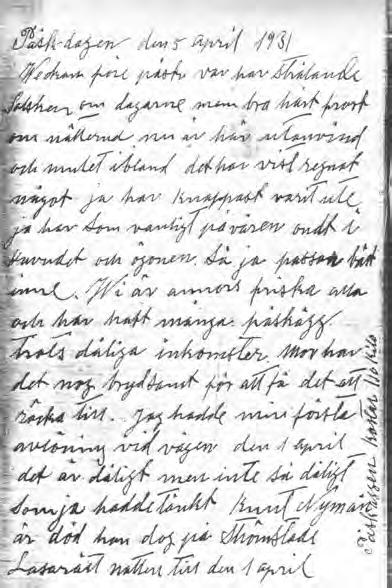 Påskdagen den 5 april 1931
Veckan före påsk var här strålande
solsken om dagarne men bra hårt frost
om nätterna nu är här utanvind
och mulet ibland det har visst regnat
något ja har knappast varit ute
ja har som vanligt på våren ondt i
huvudet och ögonen. Så ja passar bäst
inne. Wi är annors friska alla
och har haft många påskägg
trots dåliga inkomster. Mor har
det nog brydsamt för att få det att
räcka till. Jag hadde min första
avlöning vid vägen den 1 april
det är dåligt men inte så dåligt
som ja hadde tänkt Knut Nyman
är död han dog på Strömstads
Lasarätt natten till den 1 april
Påskrassen kostar 110 kr